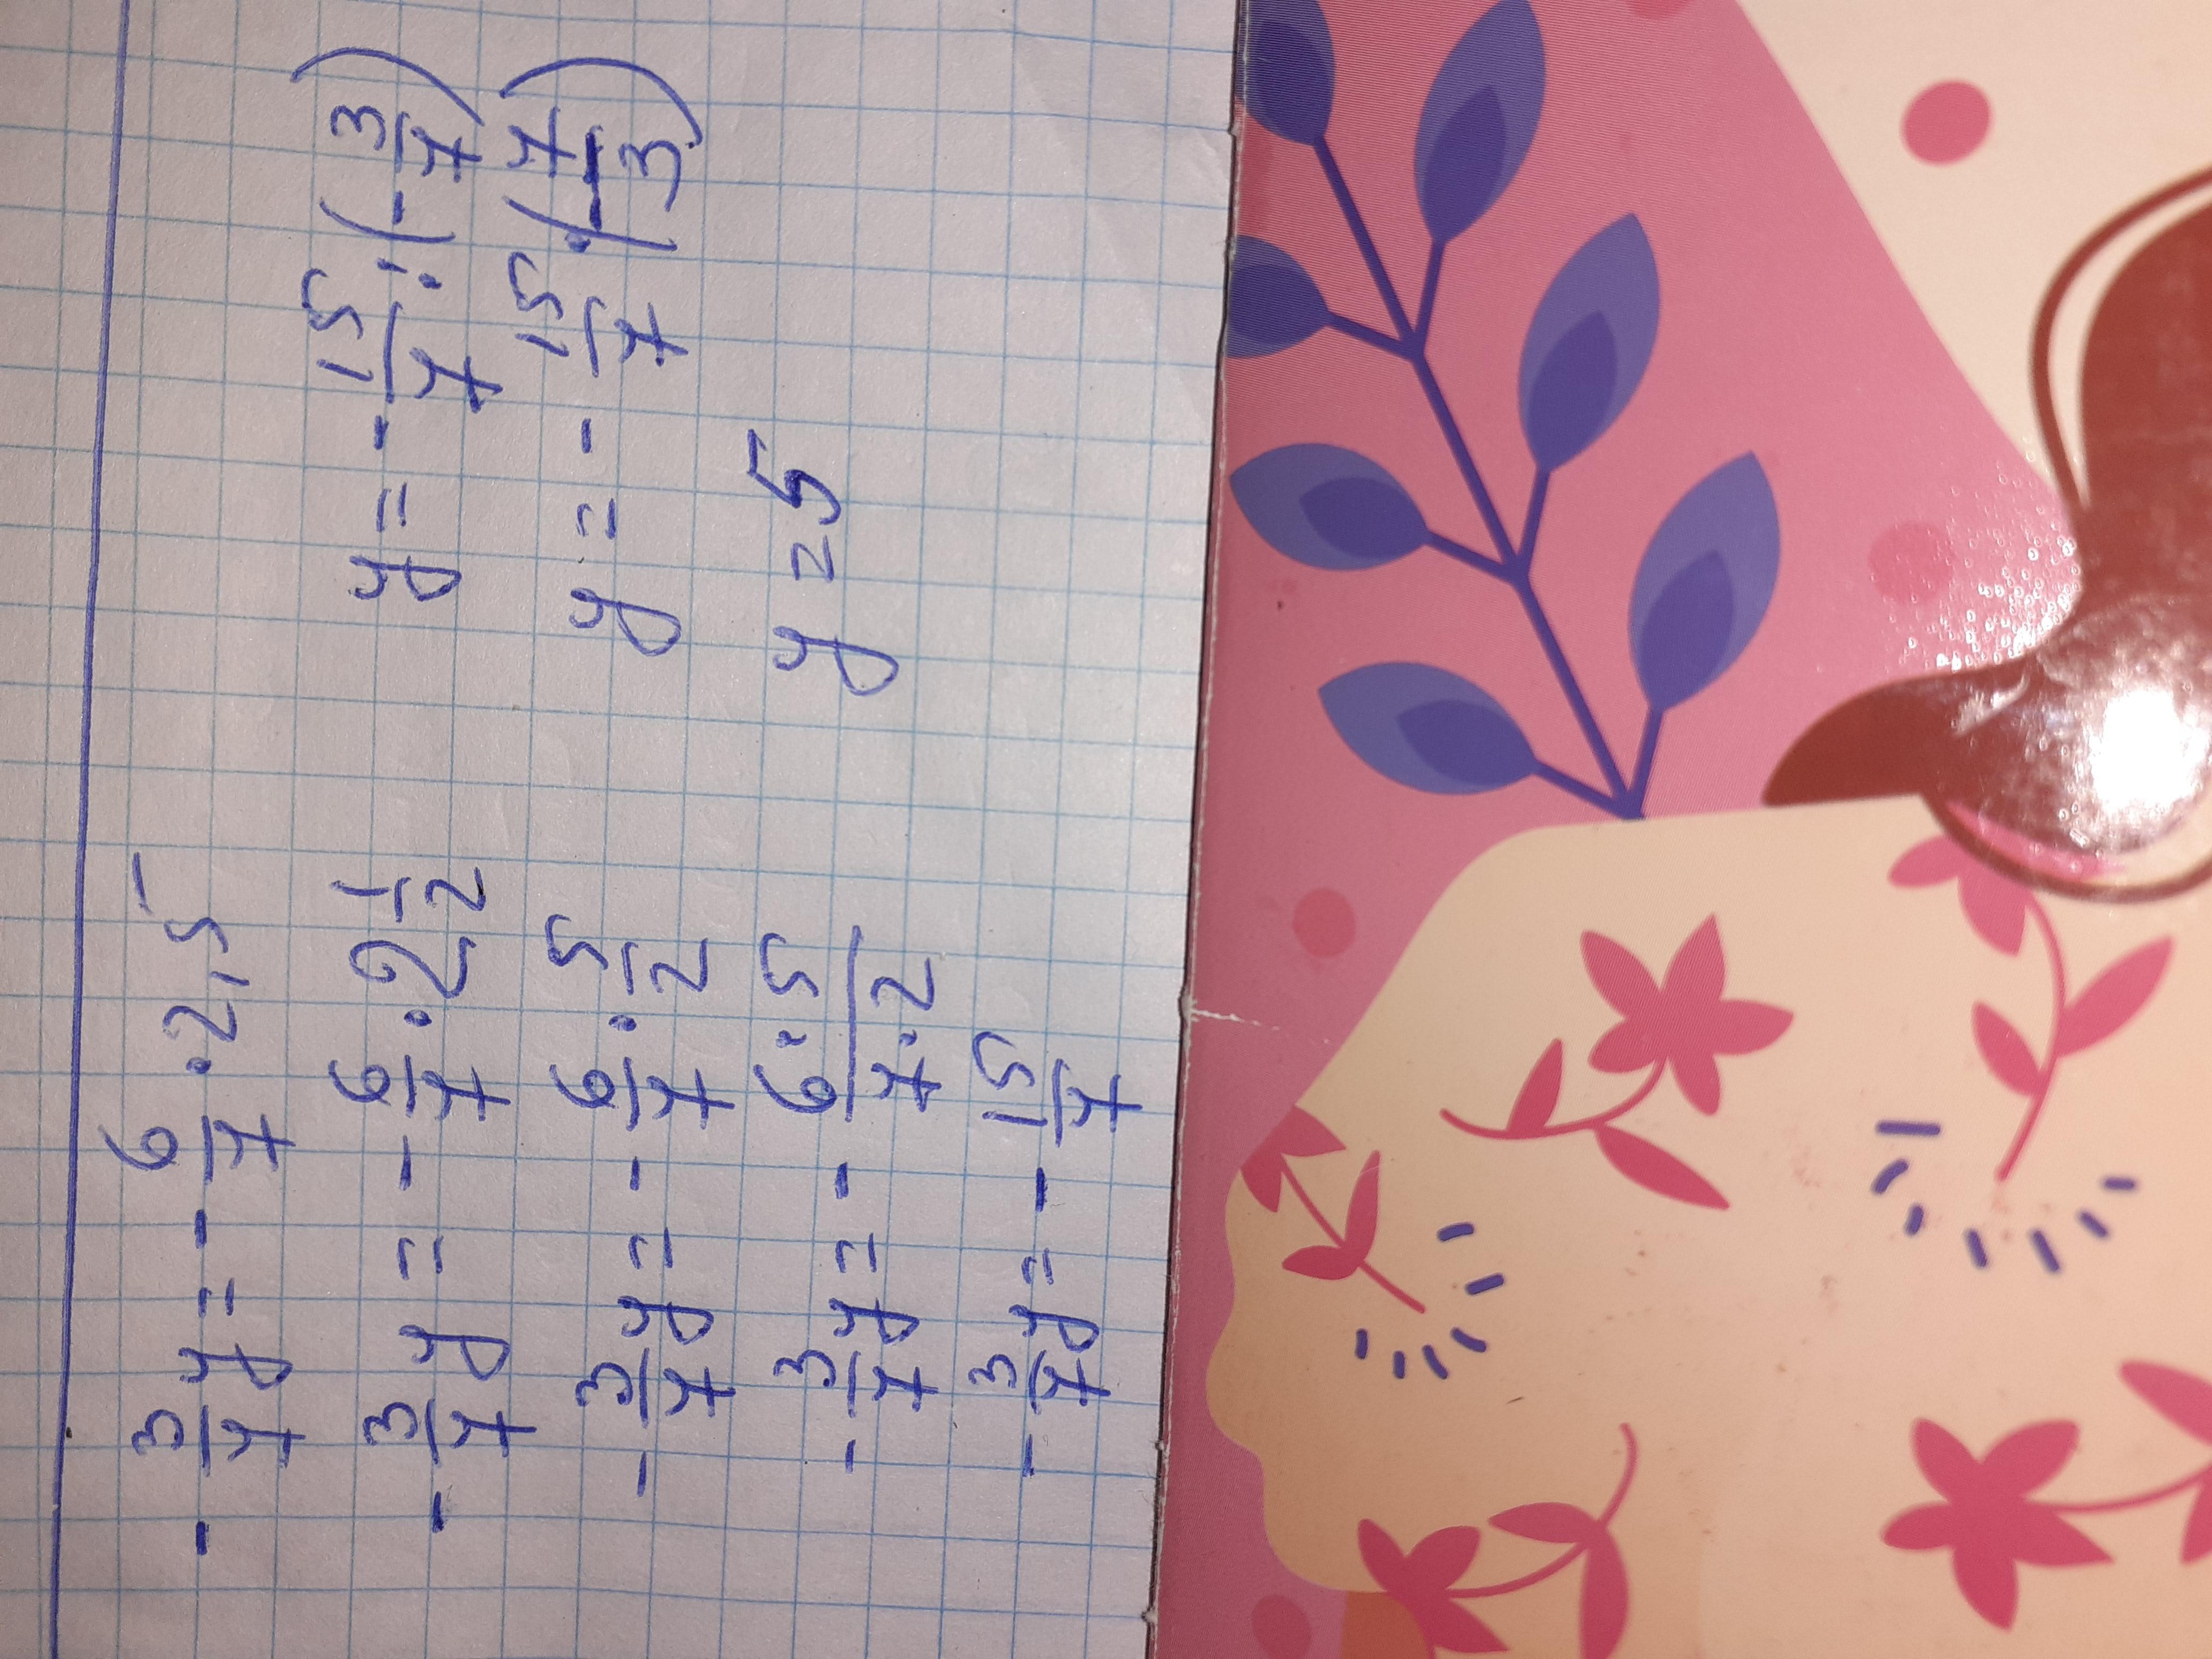 -3/7 y = -6/7 · 2,5
-3/7 y = -6/7 · 2 1/2
-3/7 y = -6/7 · 5/2
-3/7 y = -6·5/7·2
-3/7 y = -15/7
y = -15/7 : (-3/7)
y = -15/7 · (-7/3)
y = 5